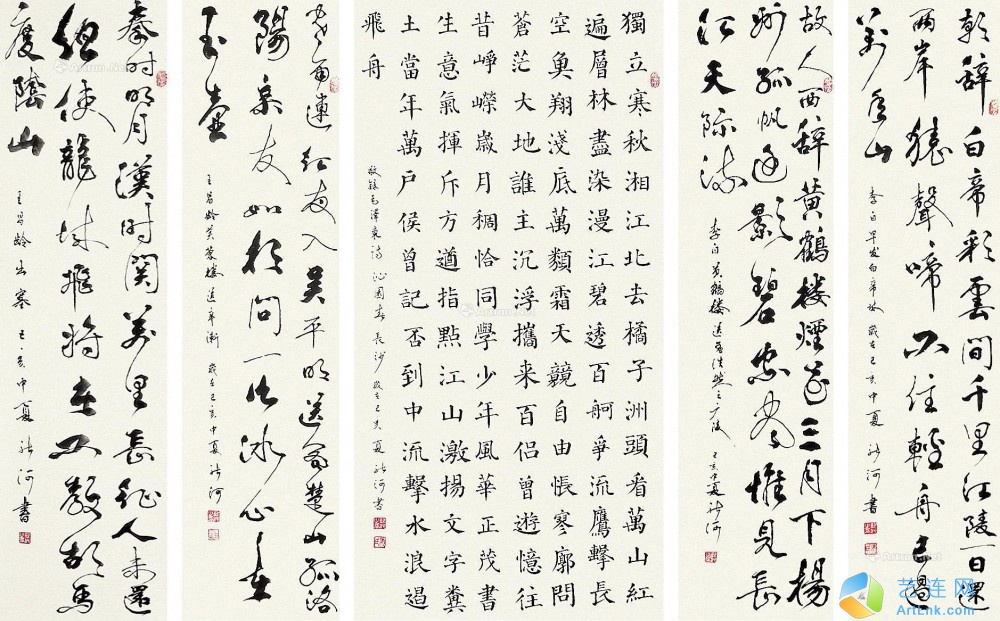 朝辞白帝彩雲间千里江陵一日還
两岸猿聲啼不住輕舟已過
萬重山
李白早发白帝城 歲在己亥中夏 河書
故人西辞黄鶴楼煙花三月下楊
州孤帆遠影碧空尽惟見長
江天際流
李白黄鶴楼送孟浩然之广陵 己亥中夏 河
獨立寒秋湘江北去橘子洲頭看萬山紅
遍層林盡染漫江碧透百舸爭流鷹擊長
空魚翔淺底萬類霜天競自由悵寒廓問
蒼茫大地誰主沉浮攜来百侶曾遊憶往
昔崢嶸歲月稠恰同學少年風華正茂書
生意氣揮斥方遒指點江山激揚文字糞
土當年萬戶侯曾記否到中流擊水浪遏
飛舟
敬録毛澤東詩 沁園春 長沙 歲在己亥夏 河書
寒雨連江夜入吴平明送客楚山孤洛
陽亲友如相問一片冰心在
玉壺
王昌龄芙蓉楼送辛漸 歲在己亥中夏 河
秦时明月漢时関萬里長征人未還
但使龍城飛将在不教胡馬
度陰山
王昌龄出塞 己亥中夏 河書
艺连网
ArtLnk.com